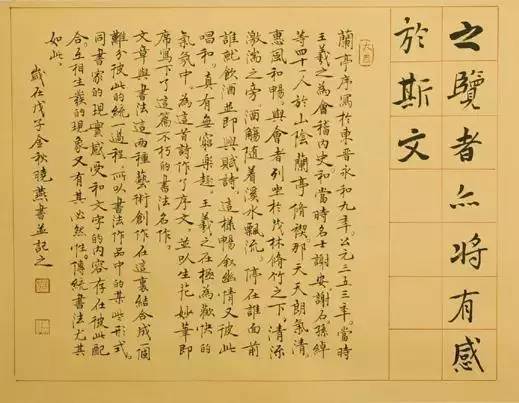 之覽者亦將有感
於斯文
蘭亭序寫於東晉永和九年。公元三五三年。當時
王羲之為會稽内史和當時名士謝安謝石孫綽
等四十一人於山陰蘭亭脩禊那天天朗氣清。
惠風和暢。與會者列坐於茂林脩竹之下。清流
激湍之旁。酒觴隨着溪水飄流。停在誰面前
誰就飲酒並即興賦詩。這樣暢叙幽情又彼此
唱和。真有無窮樂趣。王羲之在極為歡快的
氣氛中。為這首詩作了序文。並以生花妙筆即
席寫下了這篇不朽的書法名作。
文章與書法這兩種藝術創作在這裏結合成一個
難分彼此的統一過程。所以書法作品中的某些形式。
同書家的現實感受和文字的内容存在彼此配
合。互相生發的現象又有其必然性。傳統書法尤其
如此。
歲在戊子金秋曉燕書並記之